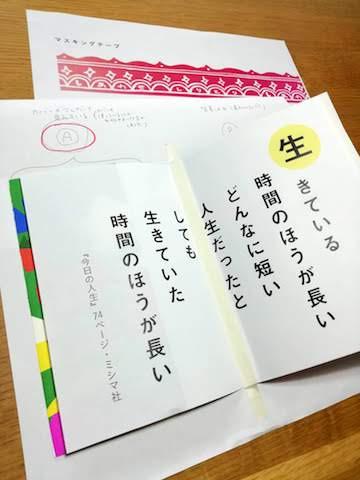 マスキングテープ
A
生きている
時間のほうが長い
どんなに短い
人生だったと
しても
生きていた
時間のほうが長い
『今日の人生』74ページ・ミシマ社